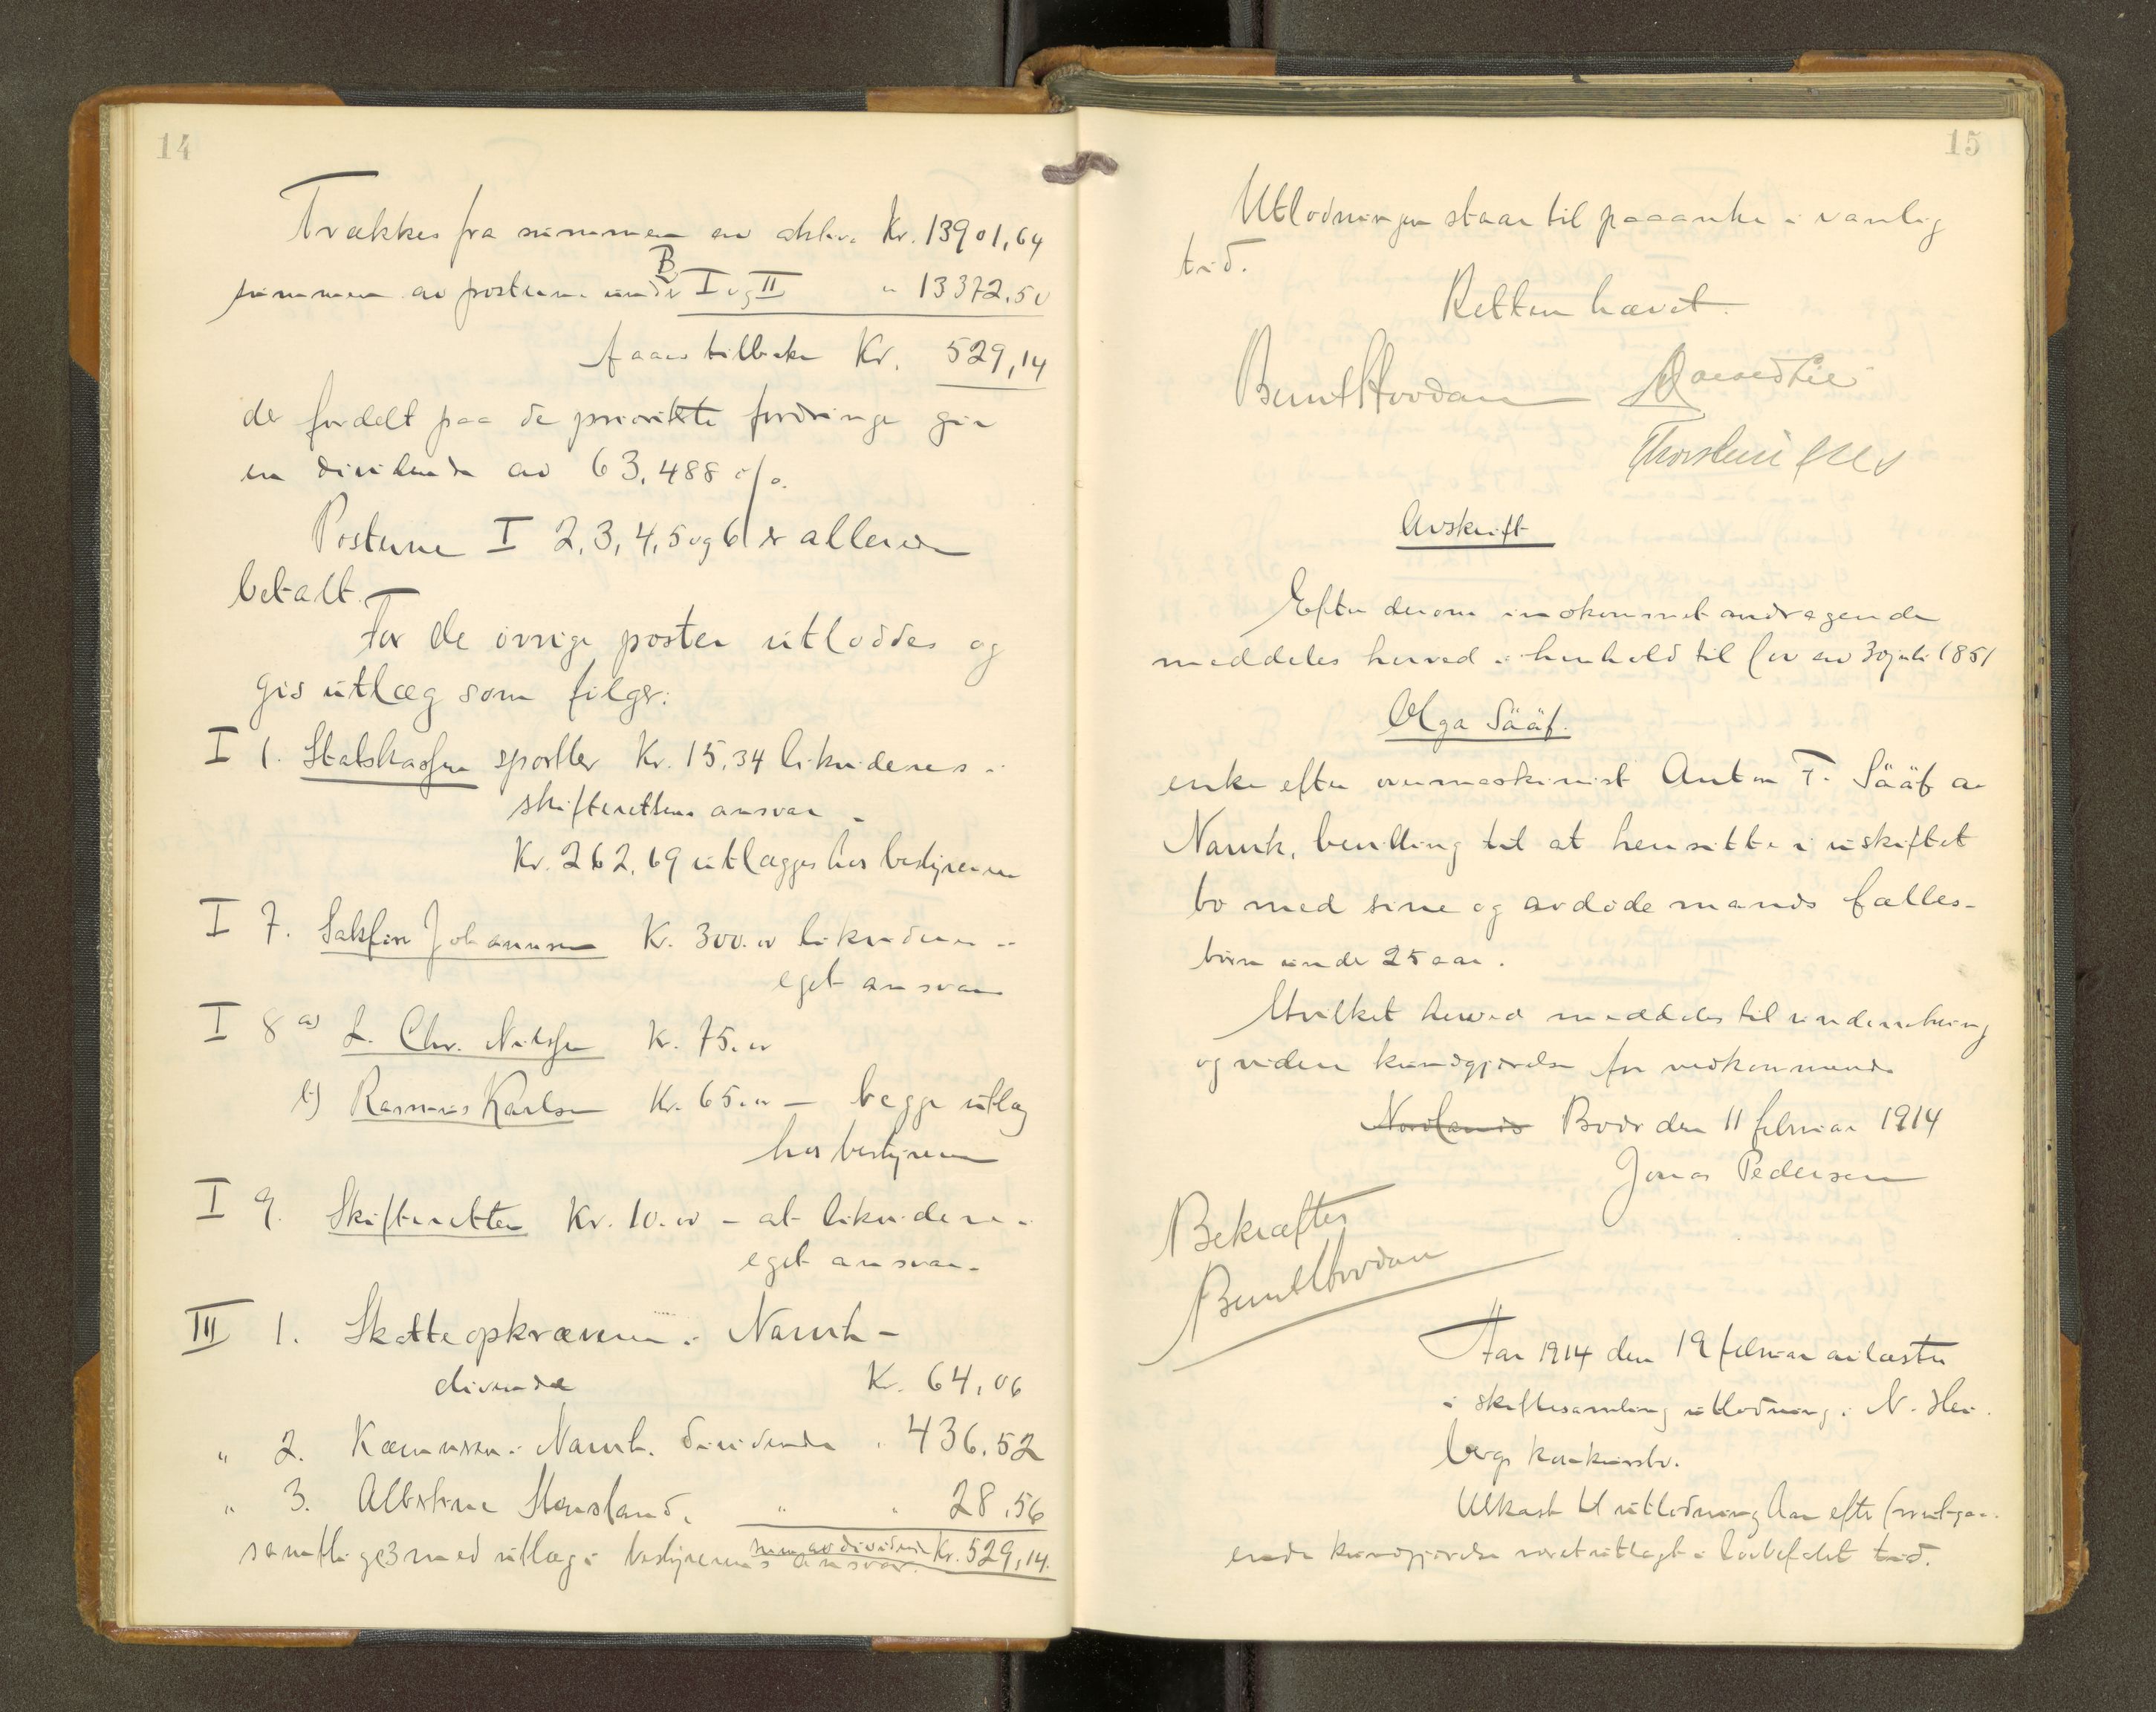 14
Trækkes fra summen av aktiva Kr. 13901,64
summen av posterne under B I og II " 13372,50
faaes tilbake Kr. 529,14
der fordelt paa de prioriterte fordringer gir
en dividende av 63,488 o/o.
Posterne I 2, 3, 4, 5 og 6 er allerede
betalt.
For de øvrige poster utloddes og
gis utlæg som følger:
I 1. Statskassen sportler Kr. 15,34 likvideres i
skifterettens ansvar -
Kr. 262,69 utlægges hos bestyreren
I 7. Sakfører Johannesen Kr. 300.00 likvideres i
eget ansvar
I 8 a) L. Chr. Nilssen Kr. 75.00
b) Rasmus Karlsen Kr. 65.00 - begge utlæg
hos bestyreren
I 9. Skifteretten Kr. 10.00 - at likvidere i
eget ansvar.
III 1. Skatteopkræveren i Narvik -
dividende Kr. 64,06
" 2. Kæmneren i Narvik dividende " 436.52
" 3. Albertine Stensland, " " 28,56
sum av dividende Kr. 529,14.
samtlige 3 med utlæg i bestyrerens ansvar.
15
Utlodningen staar til paaanke i vanlig
tid.
Retten hævet.
Bernt Hovdan
Thorstein
Avskrift
Efter derom indkommet andragende
meddeles herved i henhold til lov av 30 juli 1851
Olga Sääf.
enke efter overmaskinist Anton F. Sääf av
Narvik, bevilling til at hensitte i uskiftet
bo med sine og avdøde mands fælles-
børn under 25 aar.
Hvilket herved meddeles til underretning
og videre kundgjørelse for vedkommende
Nordlands Bodø den 11 februar 1914
Jonas Pedersen
Bekræftes
Bernt Hovdan
Aar 1914 den 19 februar avlæstes
i skiftesamling utlodning i N. Hei-
bergs konkursbo.
Utkast til utlodning har efter forutgaa-
ende kundgjørelse været utlagt i lovbefalet tid.